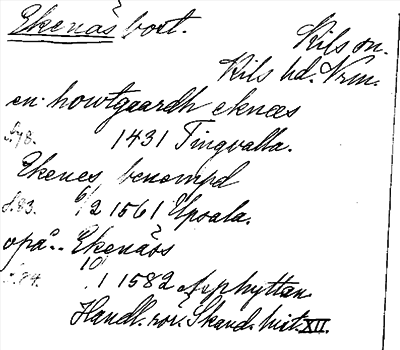 Ekenäs bort. Kils sn.
Kils hd. Vrm.
en howtgaardh eknæs
S. 78. 1431 Tingvalla.
Ekenes benompd
S. 83. 6/2 1561 Upsala.
opå.. Ekenäss
S. 84. 10/1 1582 Asphyttan.
Handl. rör. Skand. hist. XII.